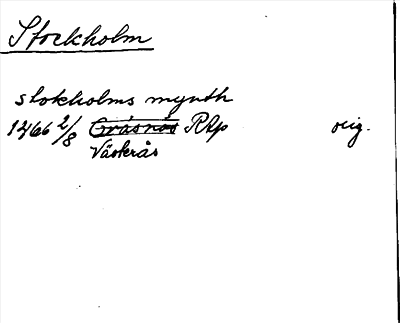 Stockholm
stokholms mynth
1466 2/8 Gråsnäs RAp orig.
Västerås